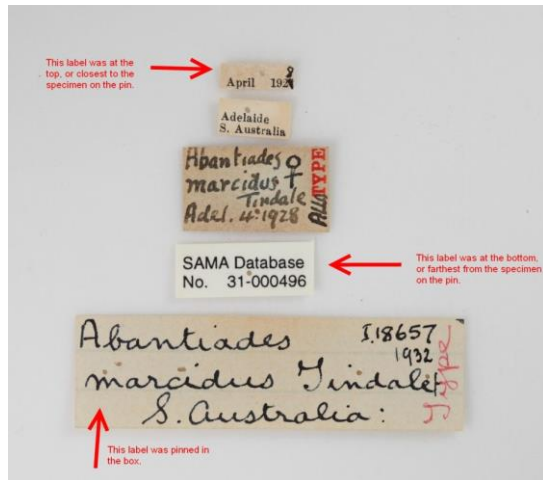 This label was at the
top, or closest to the
specimen on the pin.
April 1928
Adelaide
S. Australia
Abantiades ♀
marcidus
Tindale
Adel. 4.1928
ALLOTYPE
SAMA Database
No. 31-000496
This label was at the bottom,
or farthest from the specimen
on the pin.
Abantiades I.18657
1932
marcidus Tindale
S. Australia:
Type
This label was pinned in
the box.